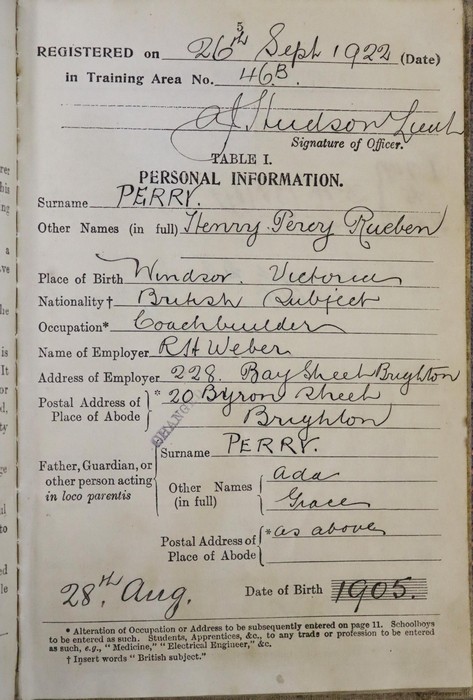 5
REGISTERED on 26th Sept 1922 (Date)
in Training Area No. 46B.
A J Hudson Lieut
Signature of Officer.
TABLE I.
PERSONAL INFORMATION.
Surname PERRY.
Other Names (in full) Henry Percy Rueben
Place of Birth Windsor. Victoria
Nationality† British Subject
Occupation* Coachbuilder
Name of Employer R H Weber
Address of Employer 228. Bay Street Brighton
Postal Address of * 20 Byron Street
Place of Abode Brighton
CHANG
Surname PERRY.
Father, Guardian, or
other person acting
in loco parentis
Other Names Ada
(in full) Grace
Postal Address of * as above
Place of Abode
28th Aug. Date of Birth 1905.
* Alteration of Occupation or Address to be subsequently entered on page 11. Schoolboys
to be entered as such. Students, Apprentices, &c., to any trade or profession to be entered
as such, e.g., "Medicine," "Electrical Engineer," &c.
† Insert words "British subject."